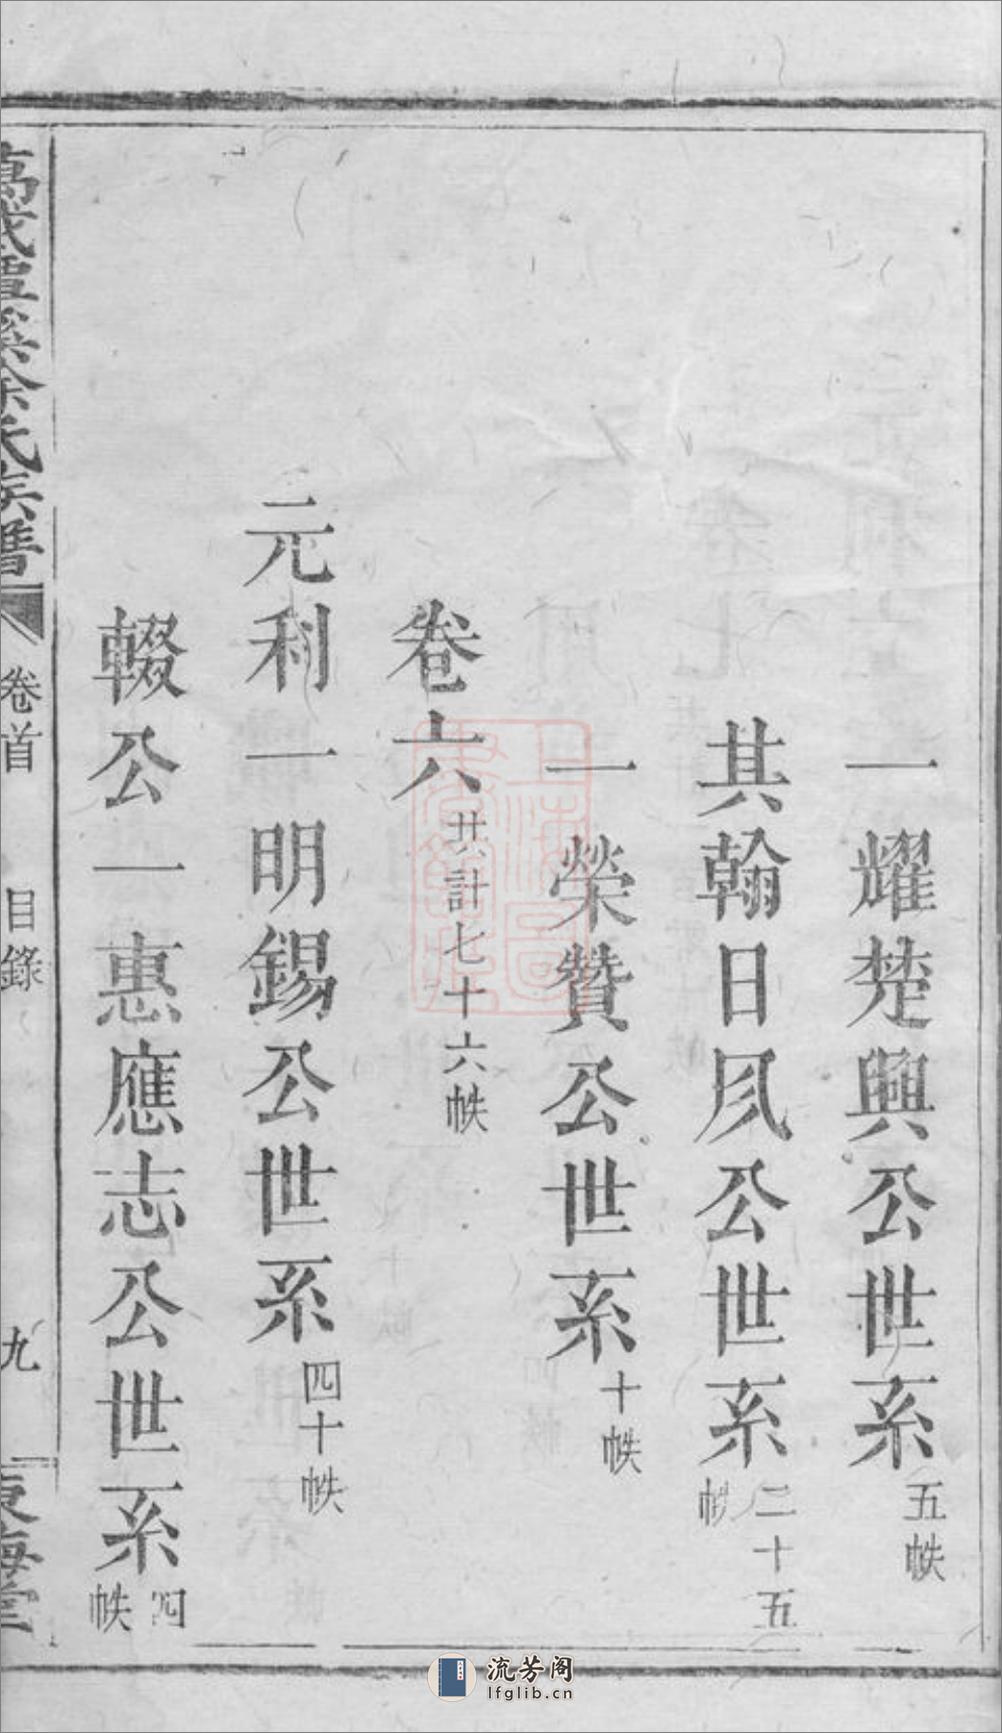 一耀楚興公世系五帙
其翰日夙公世系二十五帙
一榮贊公世系十帙
卷六共計七十六帙
元利一明錫公世系四十帙
輟公一惠應志公世系四帙
徐氏族譜
卷首
目錄
九
東海堂
流芳阁
lfglib.cn